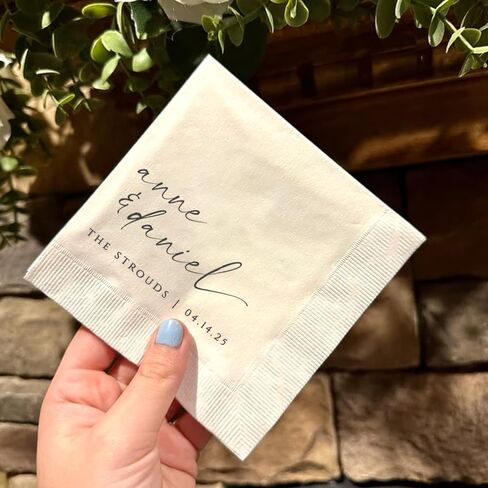 anne
& daniel
THE STROUDS | 04.14.25